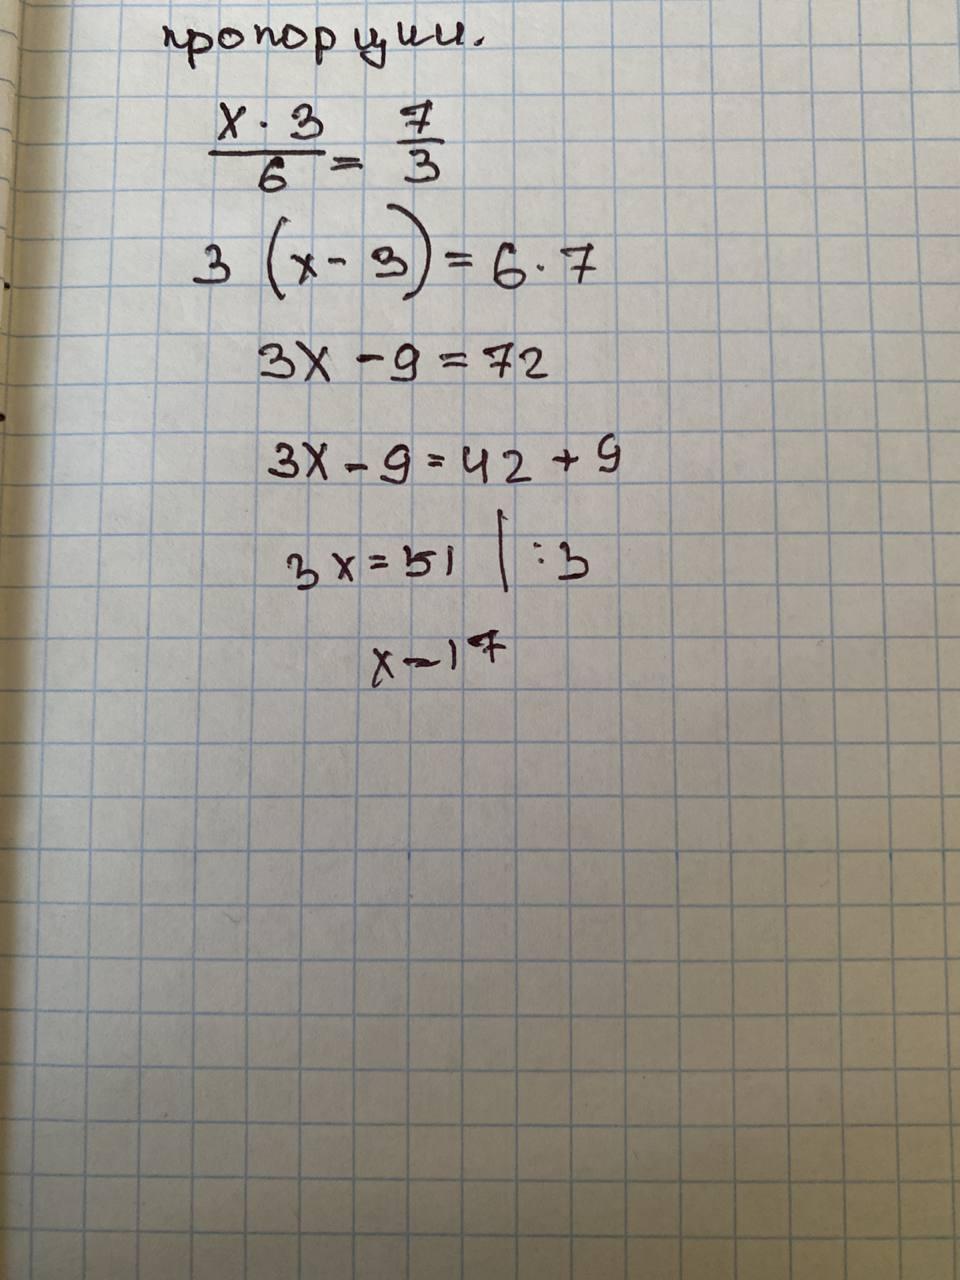 пропорции.
x · 3 / 6 = 7 / 3
3 (x - 3) = 6 · 7
3x - 9 = 72
3x - 9 = 42 + 9
3x = 51 | : 3
x - 17